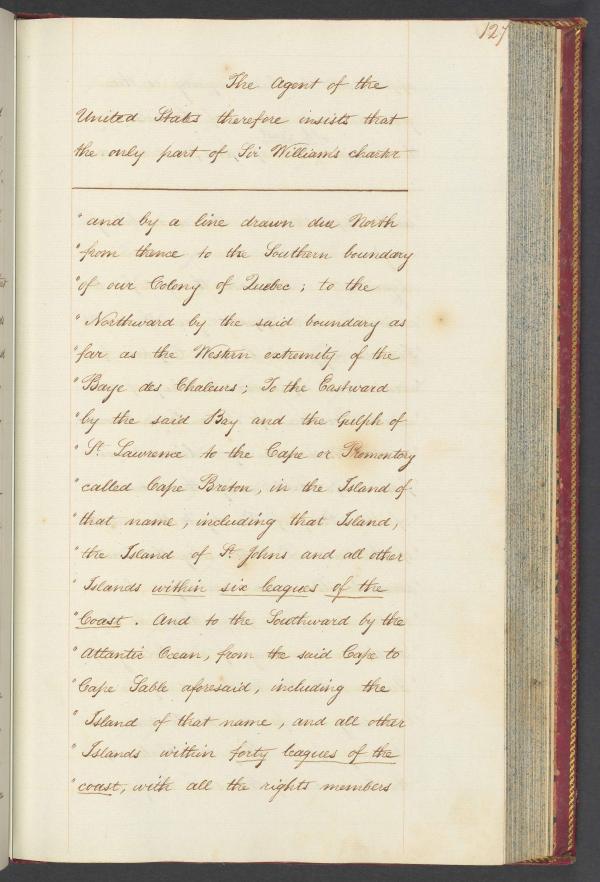 127
The Agent of the
United States therefore insists that
the only part of Sir William's charter
"and by a line drawn due North
"from thence to the Southern boundary
"of our Colony of Quebec; to the
"Northward by the said boundary as
"far as the Western extremity of the
"Baye des Chaleurs; To the Eastward
"by the said Bay and the Gulph of
"St. Lawrence to the Cape or Promontory
"called Cape Breton, in the Island of
"that name, including that Island,
"the Island of St. Johns and all other
"Islands within six leagues of the
"Coast. And to the Southward by the
"Atlantic Ocean, from the said Cape to
"Cape Sable aforesaid, including the
"Island of that name, and all other
"Islands within forty leagues of the
"coast, with all the rights members